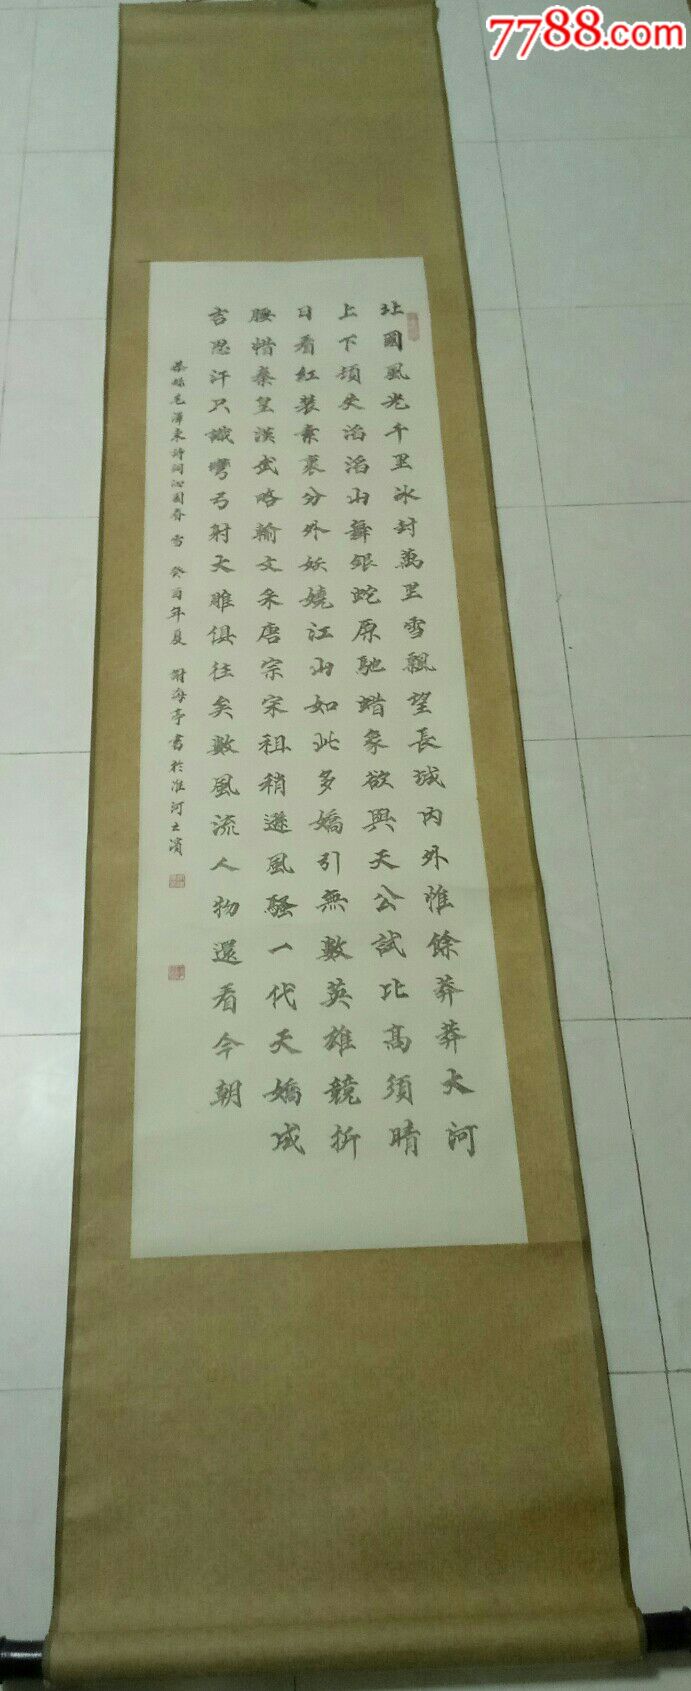 7788.com
北國風光千里冰封萬里雪飄望長城內外惟餘莽莽大河
上下頓失滔滔山舞銀蛇原馳蜡象欲與天公試比高須晴
日看紅装素裹分外妖嬈江山如此多嬌引無數英雄競折
腰惜秦皇漢武略輸文采唐宗宋祖稍遜風騷一代天嬌成
吉思汗只識彎弓射大雕俱往矣數風流人物還看今朝
恭録毛澤東詩詞沁園春 雪 癸酉年夏 謝海亭書於淮河之濱